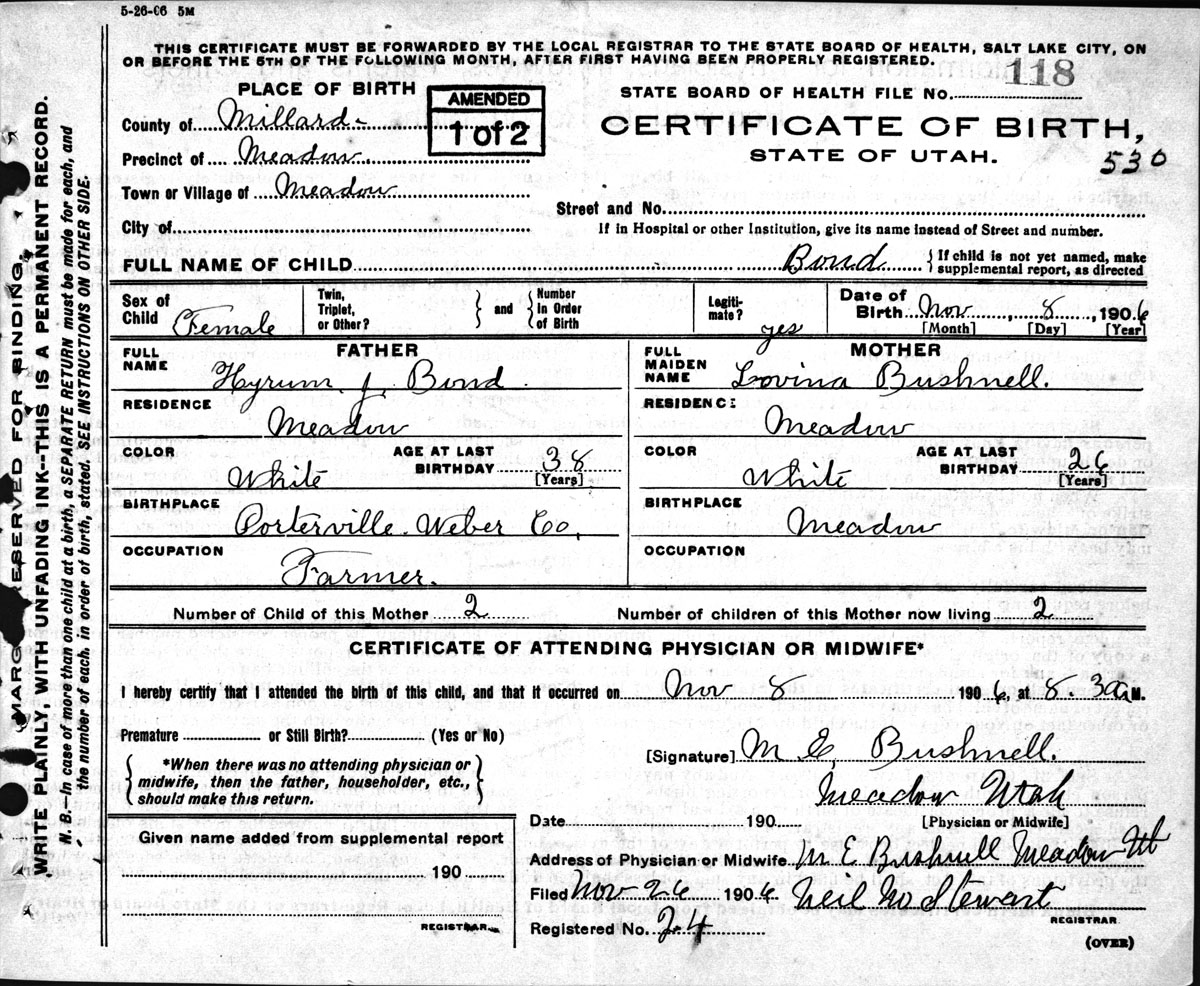 5-26-06 5M
THIS CERTIFICATE MUST BE FORWARDED BY THE LOCAL REGISTRAR TO THE STATE BOARD OF HEALTH, SALT LAKE CITY, ON
OR BEFORE THE 5TH OF THE FOLLOWING MONTH, AFTER FIRST HAVING BEEN PROPERLY REGISTERED.
118
PLACE OF BIRTH
STATE BOARD OF HEALTH FILE No.
AMENDED
1 of 2
County of Millard
CERTIFICATE OF BIRTH,
Precinct of Meadow
STATE OF UTAH.
530
Town or Village of Meadow
Street and No.
City of
If in Hospital or other Institution, give its name instead of Street and number.
FULL NAME OF CHILD Bond { If child is not yet named, make supplemental report, as directed
Sex of Child Female
Twin, Triplet, or Other? } and { Number in Order of Birth
Legitimate? yes
Date of Birth Nov, 8, 1906
[Month] [Day] [Year]
FATHER
FULL NAME Hyrum J. Bond
MOTHER
FULL MAIDEN NAME Lovina Bushnell.
RESIDENCE Meadow
RESIDENCE Meadow
COLOR White AGE AT LAST BIRTHDAY 38 [Years]
COLOR White AGE AT LAST BIRTHDAY 26 [Years]
BIRTHPLACE Porterville. Weber Co,
BIRTHPLACE Meadow
OCCUPATION Farmer.
OCCUPATION
Number of Child of this Mother 2 Number of children of this Mother now living 2
CERTIFICATE OF ATTENDING PHYSICIAN OR MIDWIFE*
I hereby certify that I attended the birth of this child, and that it occurred on Nov 8 1906, at 8.30 a M.
Premature or Still Birth? (Yes or No)
[Signature] M E, Bushnell.
{ *When there was no attending physician or midwife, then the father, householder, etc., should make this return. }
Meadow Utah
Date 190 [Physician or Midwife]
Given name added from supplemental report
190
REGISTRAR
Address of Physician or Midwife M E Bushnell Meadow Ut
Filed Nov 26 1906 Neil M Stewart
REGISTRAR
Registered No. 24
(OVER)
MARGIN RESERVED FOR BINDING.
WRITE PLAINLY, WITH UNFADING INK--THIS IS A PERMANENT RECORD.
N. B.--In case of more than one child at a birth, a SEPARATE RETURN must be made for each, and
the number of each, in order of birth, stated. SEE INSTRUCTIONS ON OTHER SIDE.